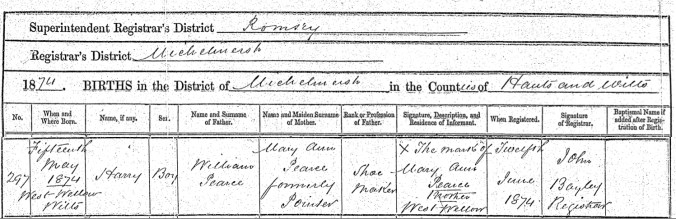 Superintendent Registrar's District Romsey
Registrar's District Michelmersh
1874. BIRTHS in the District of Michelmersh in the Counties of Hants and Wilts
No. When and Where Born. Name, if any. Sex. Name and Surname of Father. Name and Maiden Surname of Mother. Rank or Profession of Father. Signature, Description, and Residence of Informant. When Registered. Signature of Registrar. Baptismal Name if added after Registration of Birth.
297 Fifteenth May 1874 West Wellow Wilts
Harry
Boy
William Pearce
Mary Ann Pearce formerly Pointer
Shoe Maker
X The mark of Mary Ann Pearce Mother West Wellow
Twelfth June 1874
John Bayley Registrar